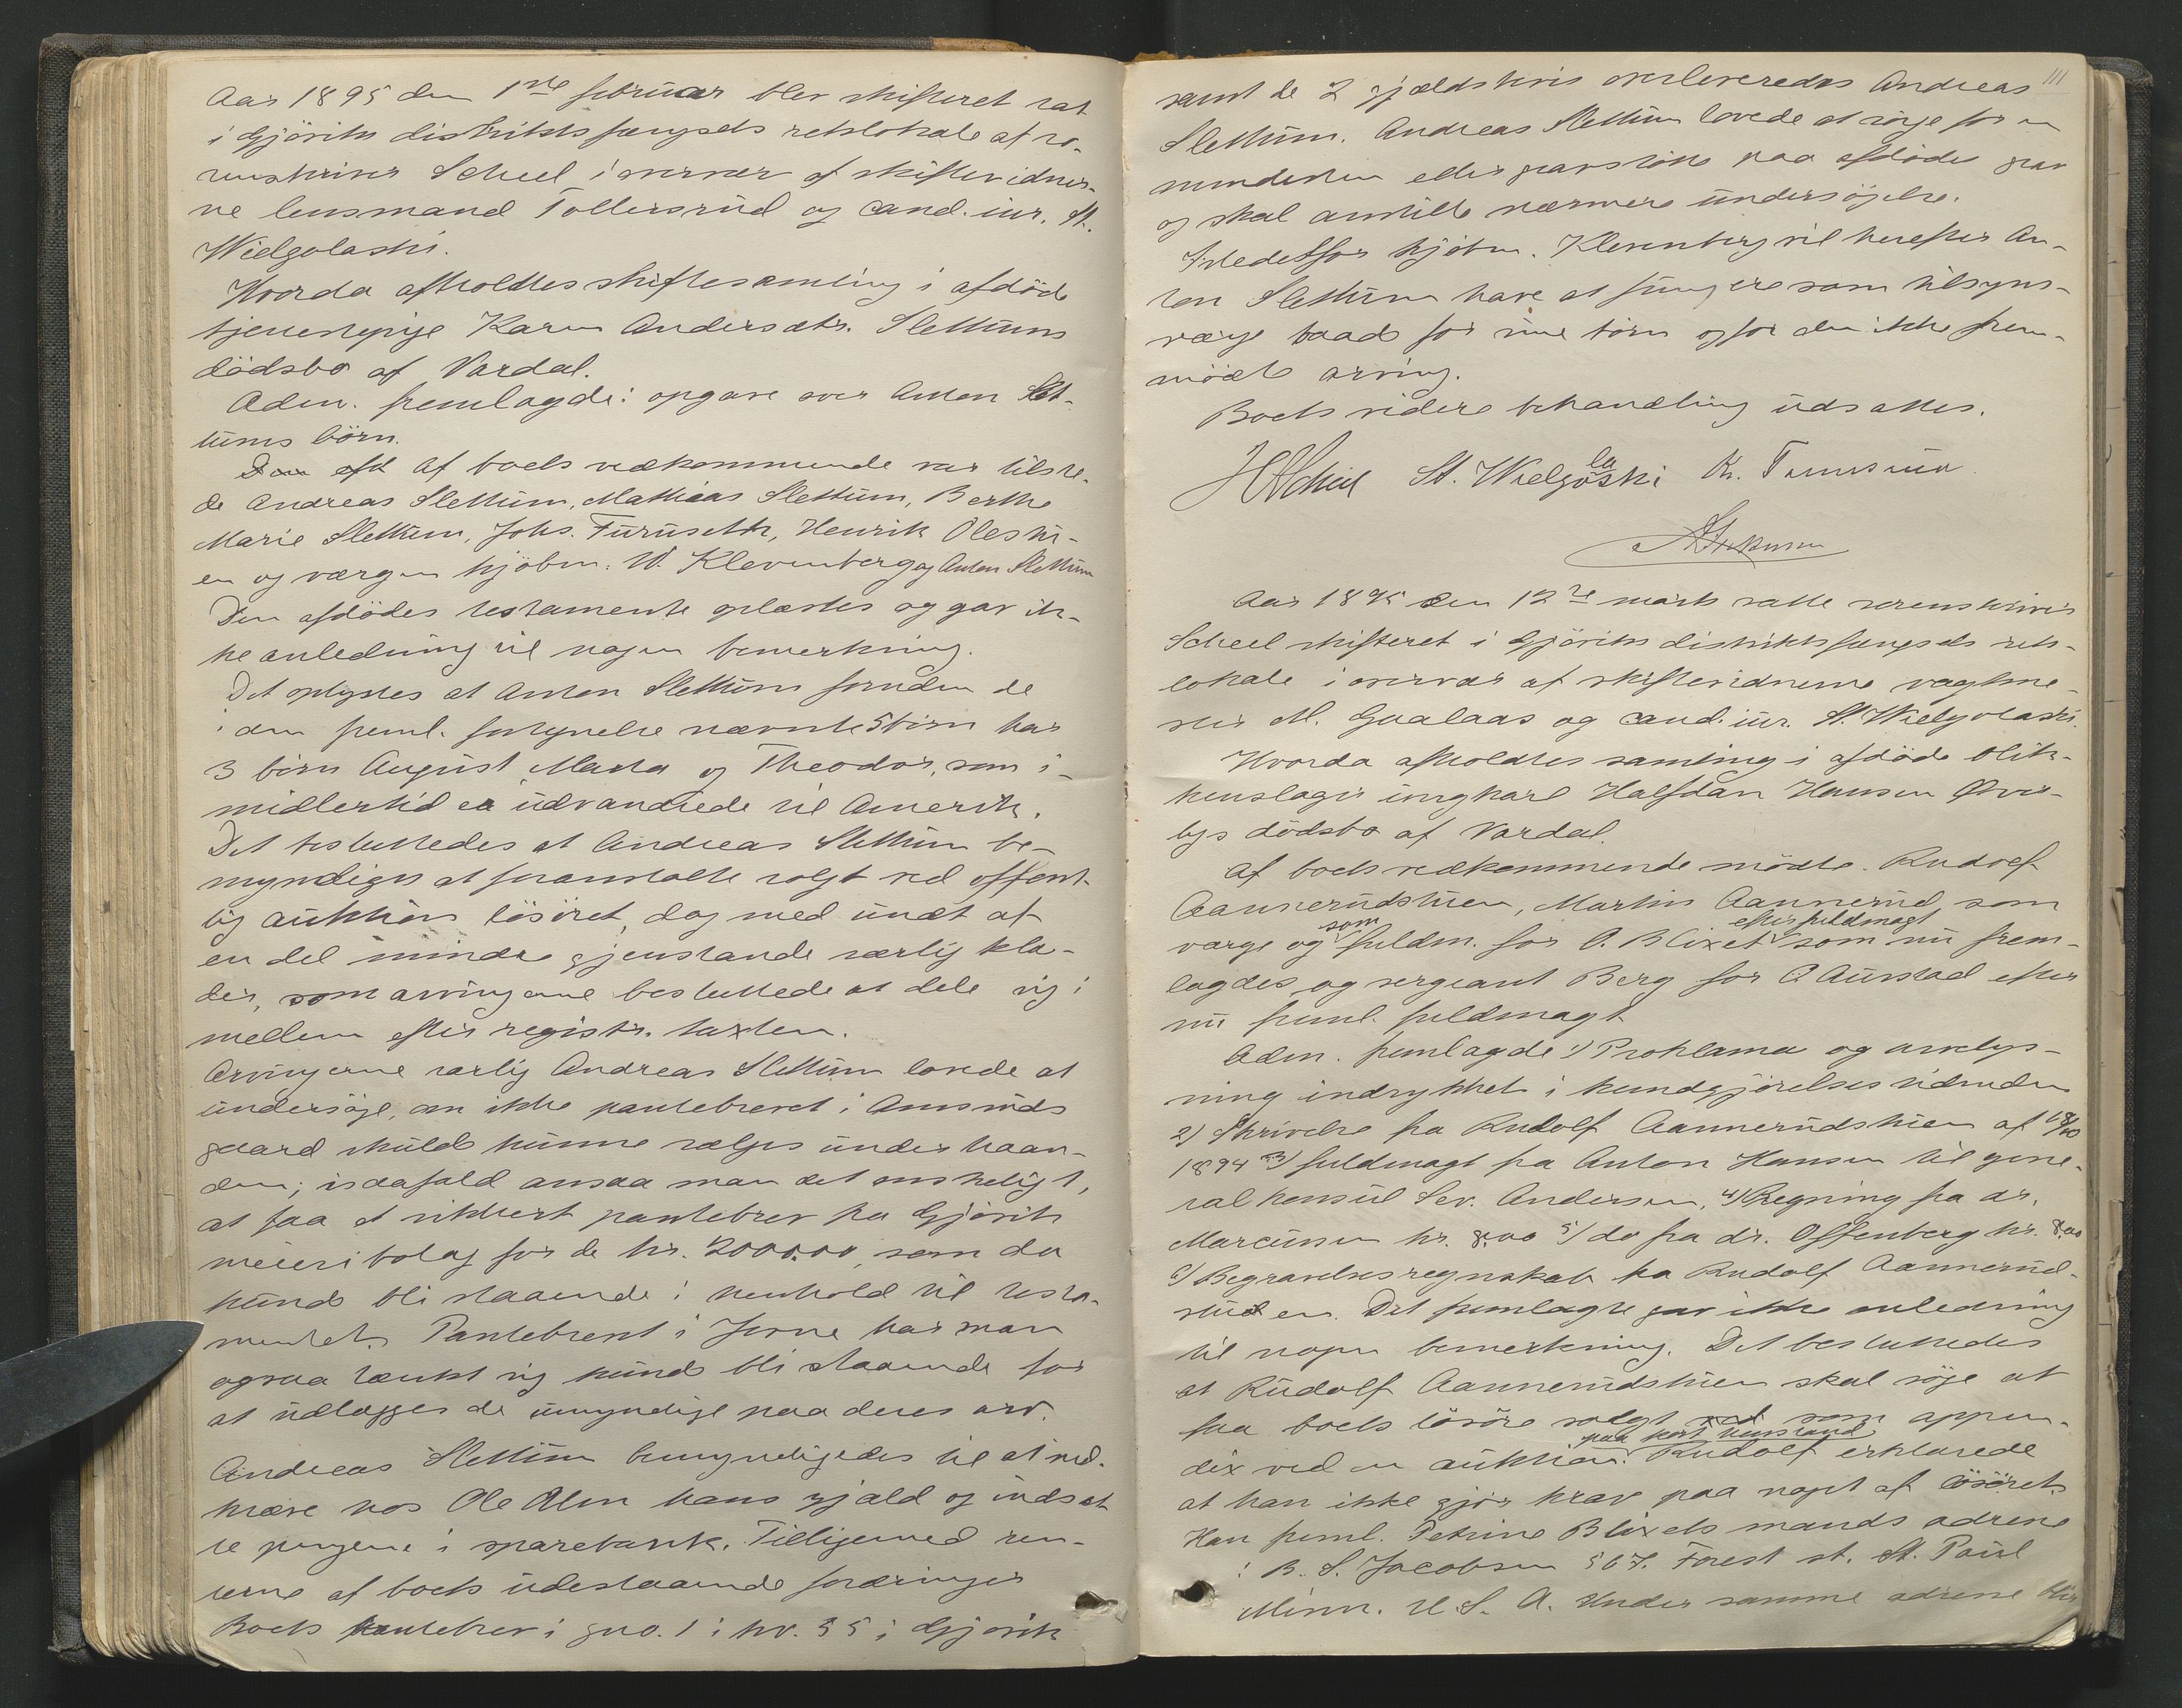 Aar 1895 den 1ste februar blev skifteret sat
i Gjøviks distriktsfængsels retslokale af so-
renskriver Scheel i overvær af skiftevidner-
ne lensmand Tollersrud og cand. jur. St.
Wielgolaski.
Hvorda afholdtes skiftesamling i afdøde
tjenestepige Karen Andersdtr. Slettums
dødsbo af Vardal.
Adm. fremlagde: opgave over Anton Slet-
tums børn.
Af boets vedkommende var tilste-
de Andreas Slettum, Mathias Slettum, Berthe
Marie Slettum, Johs. Furuseth, Henrik Olesti-
en og værgen kjøbm. W. Klevenberg og Anton Slettum
Den afdødes testamente oplæstes og gav ik-
ke anledning til nogen bemerkning.
Det oplystes at Anton Slettum foruden de
i den freml. fortegnelse nævnte 5 børn har
3 børn August, Marta og Theodor, som i-
midlertid er udvandrede til Amerika.
Det besluttedes at Andreas Slettum be-
myndiges at foranstalte solgt ved offent-
lig auktion løsøret, dog med undt af
en del mindre gjenstande særlig klæ-
der, som arvingerne besluttede at dele sig i
mellem efter registr. taxten.
Arvingerne særlig Andreas Slettum lovede at
undersøge, om ikke pantebrevet i
gaard skulde kunne sælges under haan-
den; isaafald ansaa man det ønskeligt,
at faa et sikkert pantebrev fra Gjøvik
meieribolag for de kr. 2000.00, som da
kunde bli staaende i henhold til testa-
mentet. Pantebrevet i har man
ogsaa tænkt sig kunde bli staaende for
at udlægges de umyndige paa deres arv.
Andreas Slettum bemyndigedes til at ind-
kræve hos Ole Alm hans gjæld og indsæt
te pengene i sparebank. Tilligemed ren-
terne af boets udestaaende fordringer
Boets pantebrev i gno. 1 i kv. 35 i Gjøvik
111
samt de 2 gjældsbrev overleveredes Andreas
Slettum. Andreas Slettum lovede at sørge for en
mindesten eller gravstøtte paa afdødes grav
og skal anstille nærmere undersøgelse.
Istedetfor kjøbm. Klevenberg vil herefter An-
ton Slettum have at fungere som tilsyns-
værge baade for sine børn og for den ikke frem-
mødte arving.
Boets videre behandling udsattes.
HScheel St. Wielgolaski K.
Aar 1895 den 12te marts satte sorenskriver
Scheel skifteret i Gjøviks distriktsfængsels rets-
lokale i overvær af skiftevidnerne vagtme-
ster M. Gaalaas og cand. jur. St. Wielgolaski.
Hvorda afholdtes samling i afdøde blik-
kenslager ungkarl Halfdan Hansen Øver-
bys dødsbo af Vardal.
Af boets vedkommende mødte. Rudolf
Aannerudstuen, Martin Aannerud som
værge og som fuldm. for O. Blixet efter fuldmagt som nu frem-
lagdes og sergeant Berg for O Aurstad efter
nu freml. fuldmagt
Adm. fremlagde 1) Proklama og arvelys-
ning indrykket i kundgjørelsestidenden
2) Skrivelse fra Rudolf Aannerudstuen af 18/10
1894 3) fuldmagt fra Anton Hansen til gene-
ralkonsul Sev. Andersen, 4) Regning fra dr.
Marcussen kr. 8.00 5) do fra dr. Offenberg kr. 8.00
6) Begravelsesregnskab fra Rudolf Aannerud-
stuen. Det fremlagte gav ikke anledning
til nogen bemerkning. Det besluttedes
at Rudolf Aannerudstuen skal søge at
faa boets løsøre solgt som appen-
dix ved en auktion. Rudolf erklærede
at han ikke gjør krav paa noget af løsøret.
Han freml. Petrine Blixets mands adresse
: B. S. Jacobsen 567. Forest st. St. Paul
Minn. U. S. A. Under samme adresse blir